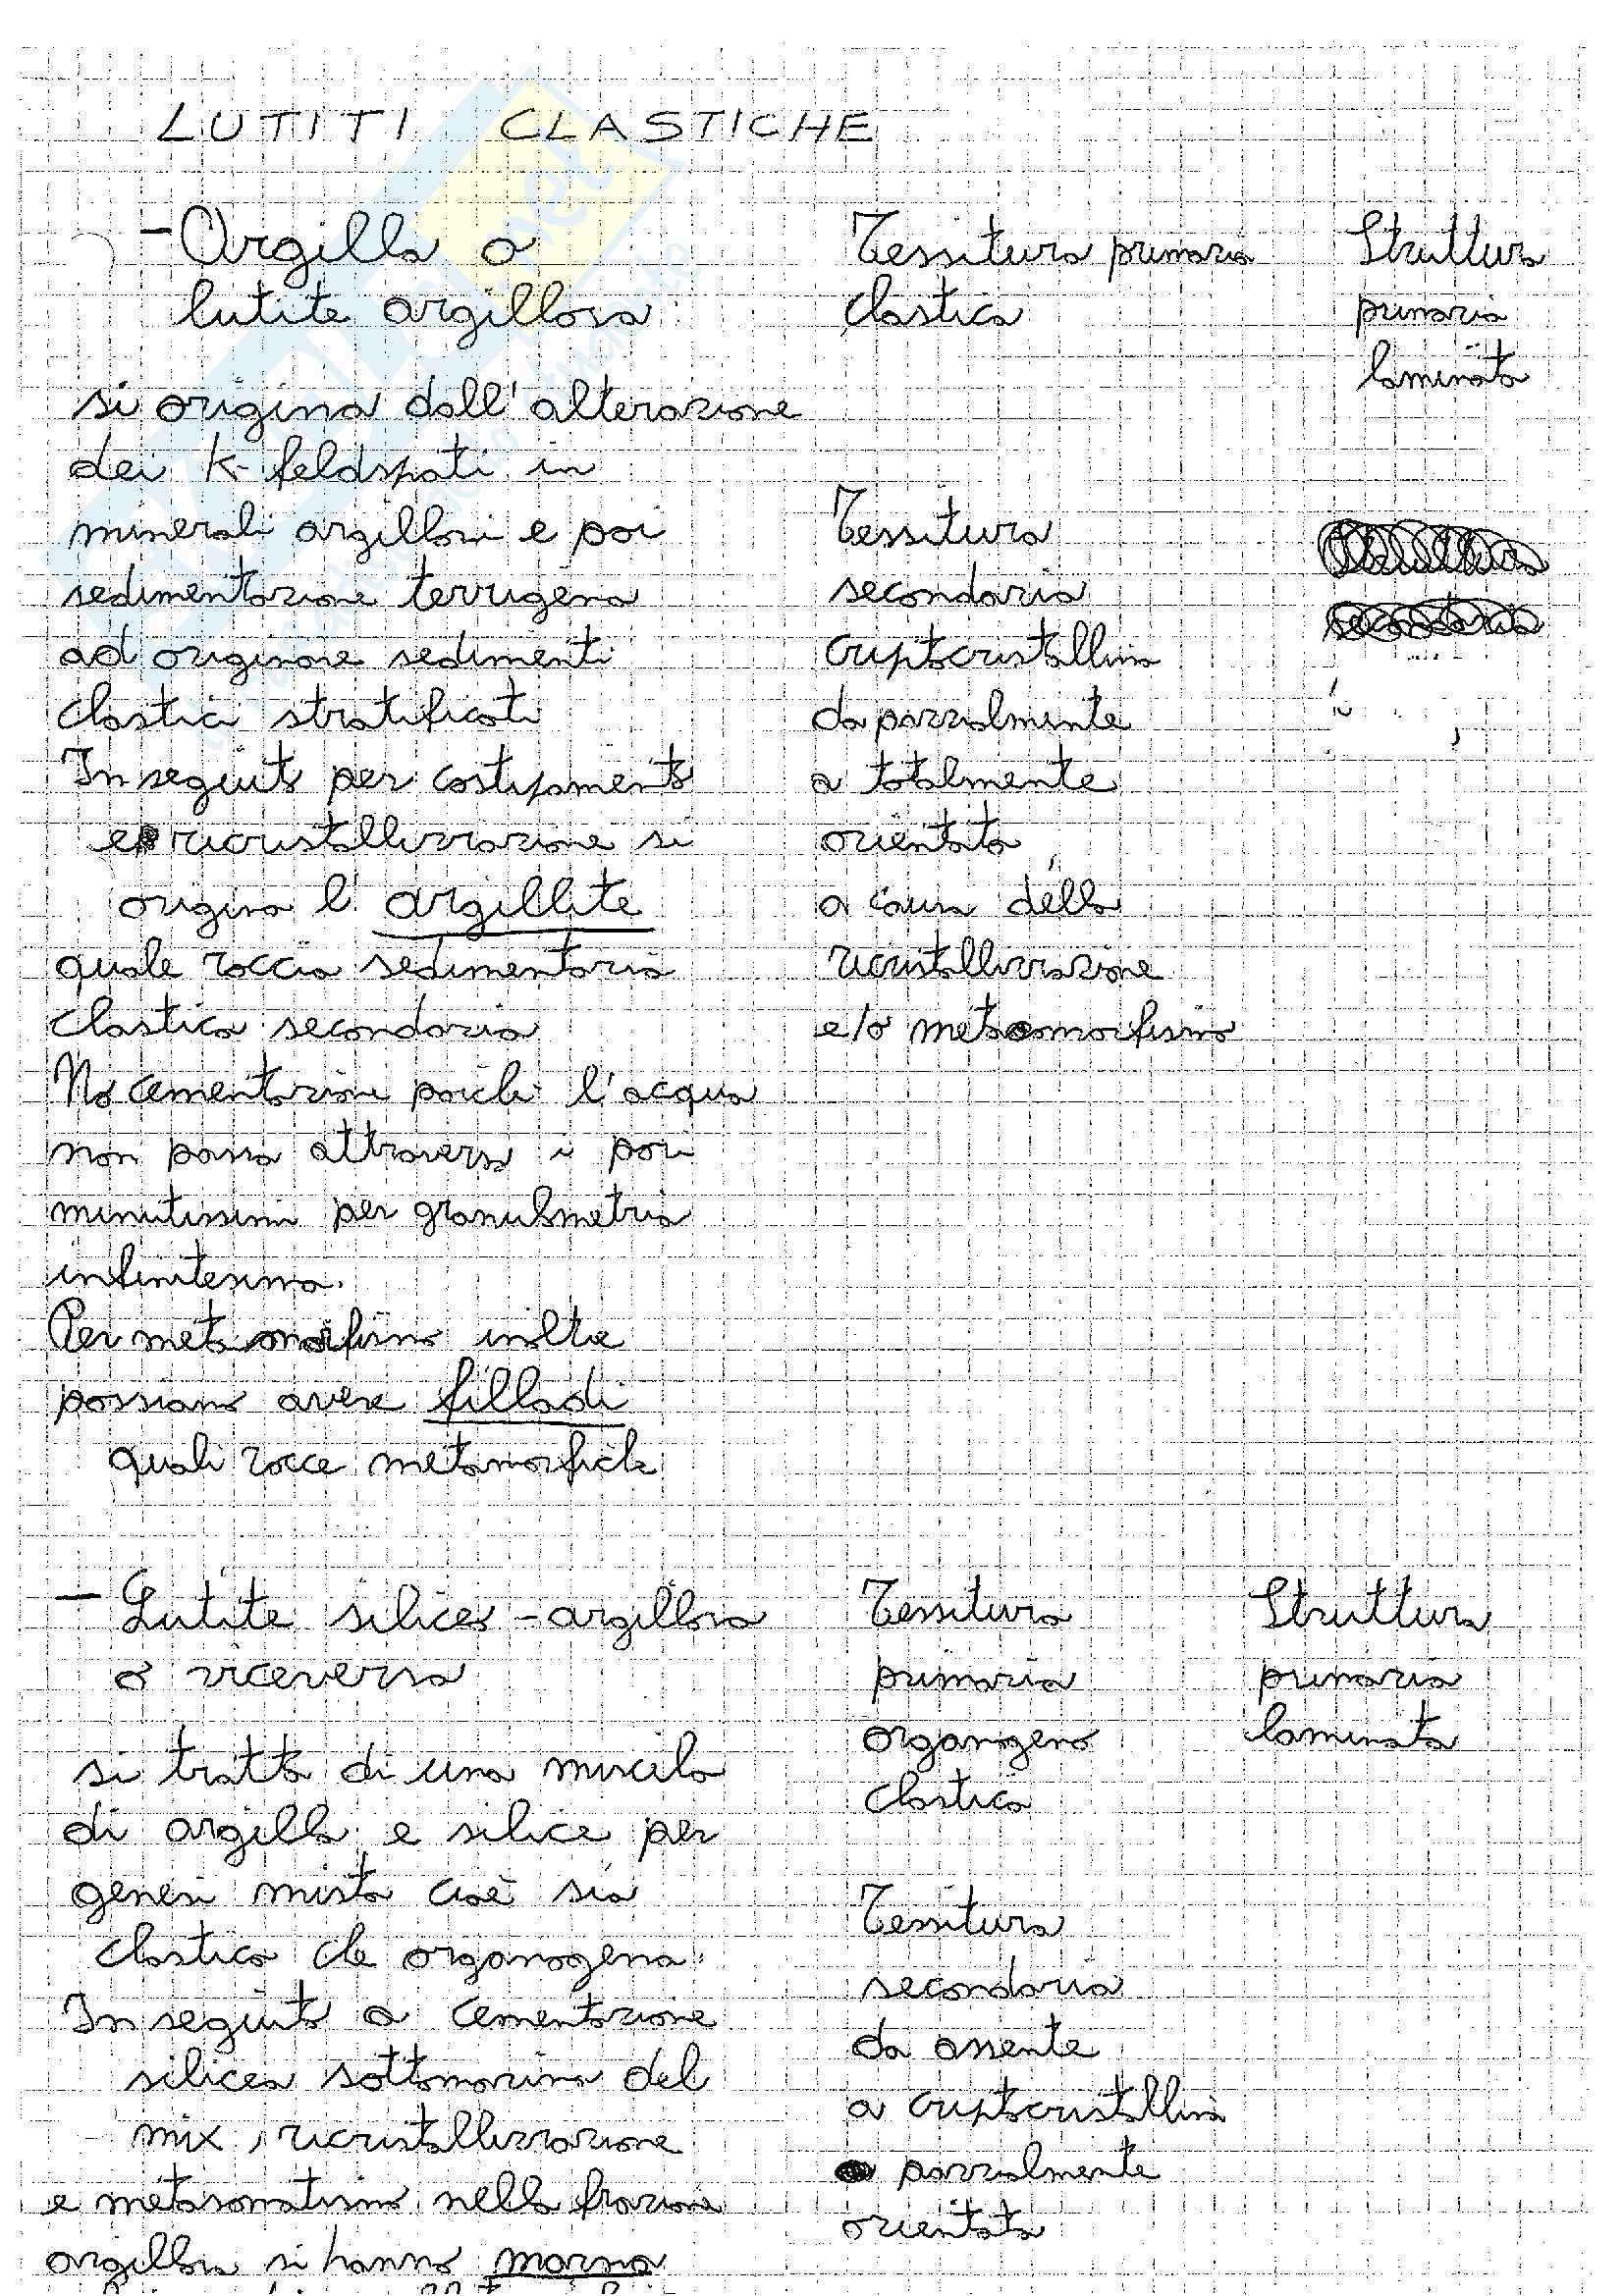 LUTITI CLASTICHE
- Argilla o
lutite argillosa
si origina dall'alterazione
dei K-feldspati in
minerali argillosi e poi
sedimentazione terrigena
ad originare sedimenti
clastici stratificati
In seguito per costipamento
e ricristallizzazione si
origina l'argillite
quale roccia sedimentaria
clastica secondaria
No cementazione poiché l'acqua
non passa attraverso i pori
minutissimi per granulometria
infinitesima.
Per metamorfismo inoltre
possiamo avere filladi
quali rocce metamorfiche
Tessitura primaria
clastica
Struttura
primaria
laminata
Tessitura
secondaria
criptocristallina
da parzialmente
a totalmente
orientata
a causa della
ricristallizzazione
e/o metamorfismo
- Lutite siliceo-argillosa
o viceversa
si tratta di una miscela
di argilla e silice per
genesi mista cioè sia
clastica che organogena.
In seguito a cementazione
silicea sottomarina del
mix, ricristallizzazione
e metasomatismo nella frazione
argillosa si hanno marna
Tessitura
primaria
organogeno
clastica
Struttura
primaria
laminata
Tessitura
secondaria
da assente
a criptocristallina
parzialmente
orientata